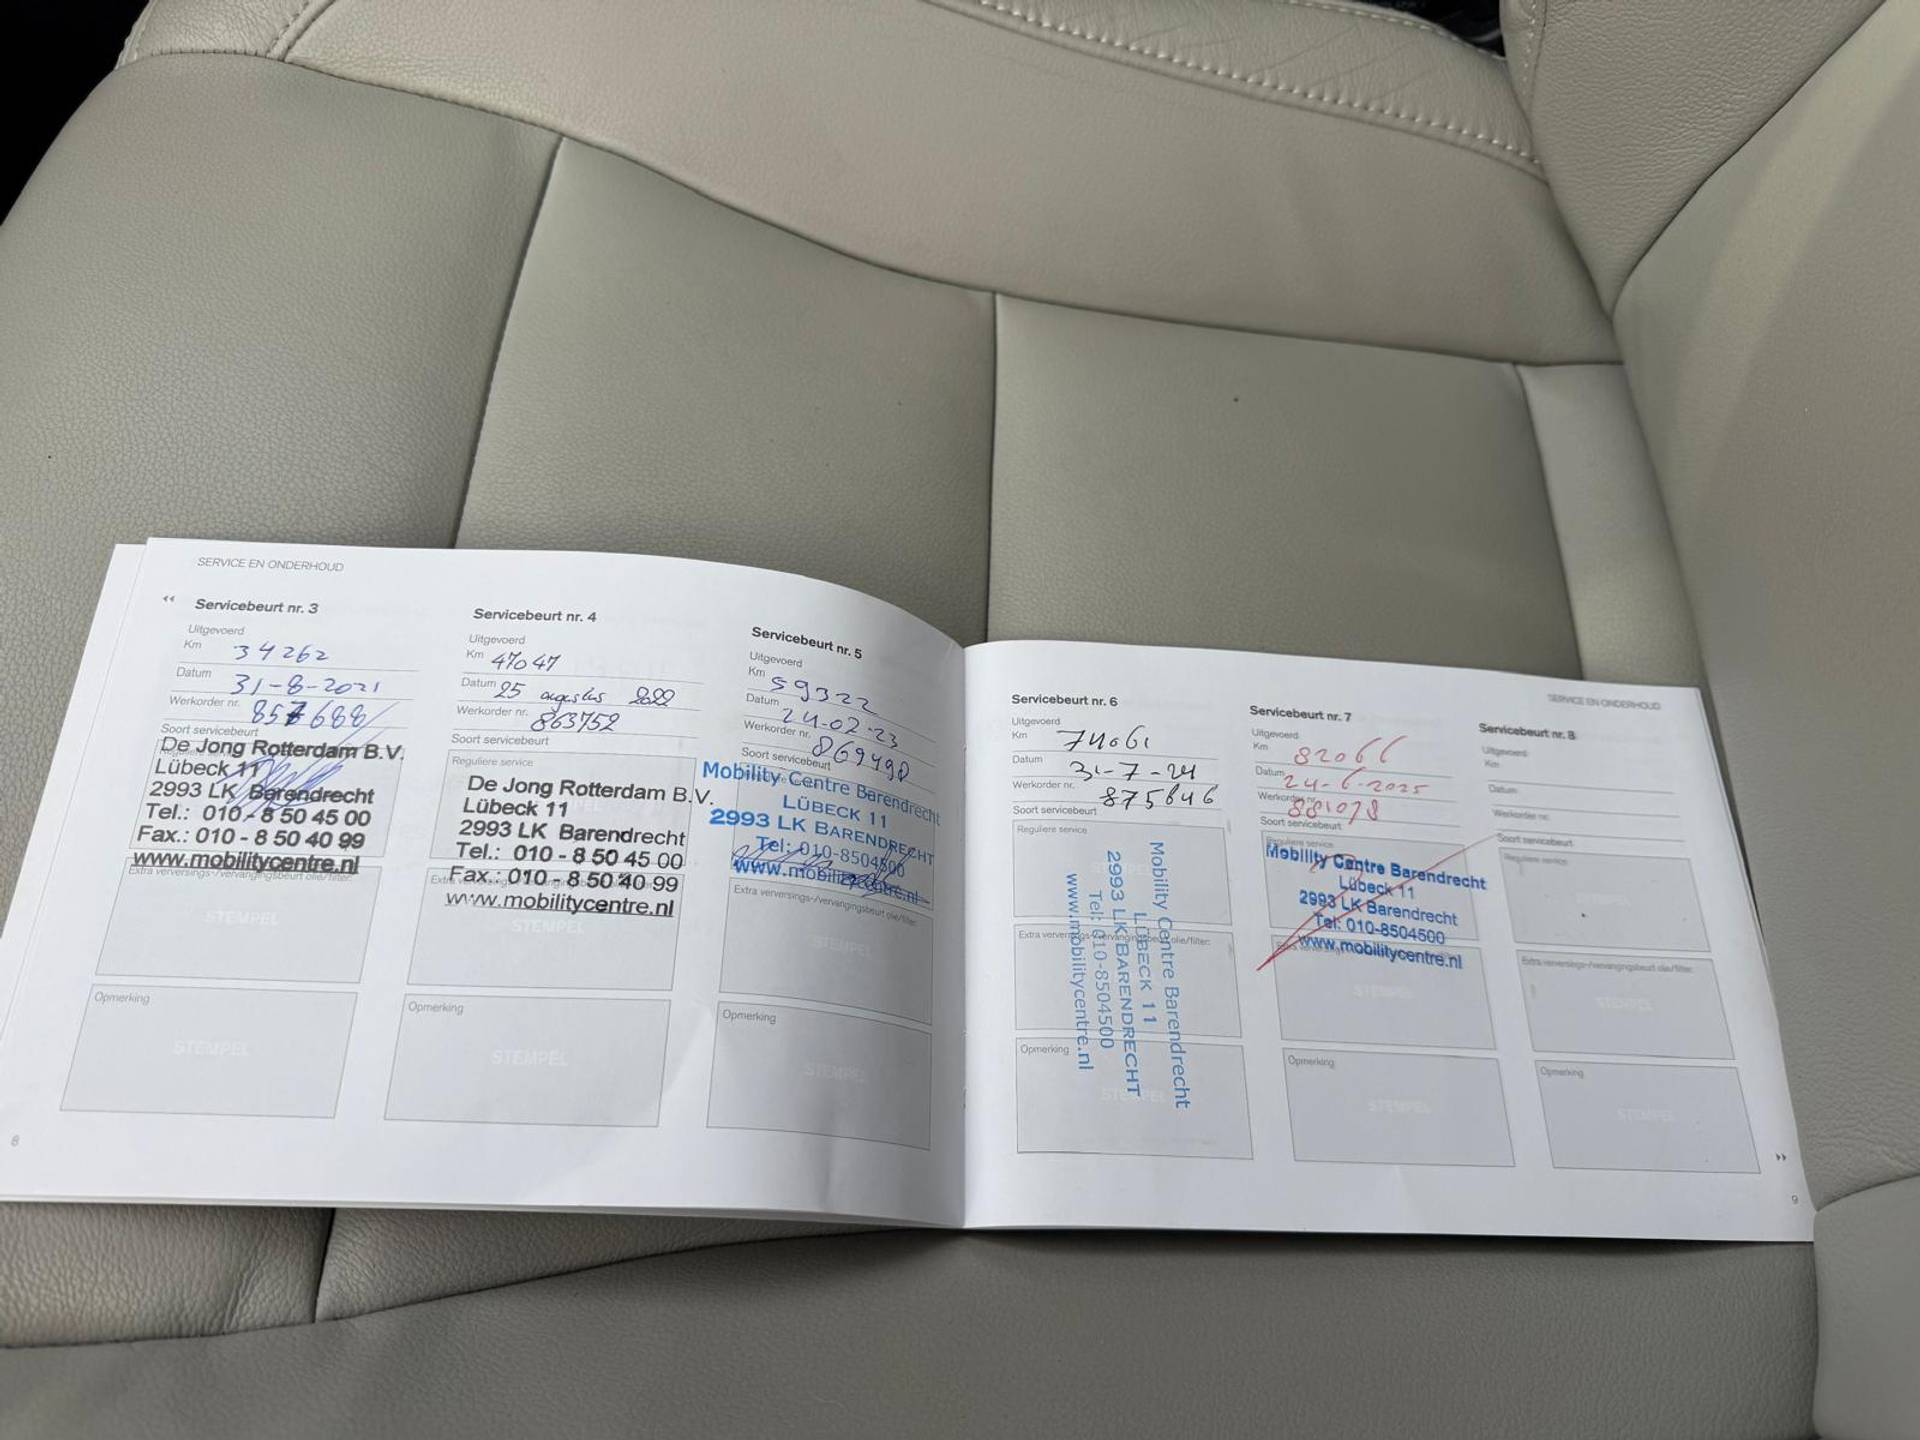 SERVICE EN ONDERHOUD
Servicebeurt nr. 3
Uitgevoerd
Km 34262
Datum 31-8-2021
Werkorder nr. 857688
Soort servicebeurt
De Jong Rotterdam B.V.
Lübeck 11
2993 LK Barendrecht
Tel.: 010 - 8 50 45 00
Fax.: 010 - 8 50 40 99
www.mobilitycentre.nl
Extra verversings-/vervangingsbeurt olie/filter:
STEMPEL
Opmerking
STEMPEL
8
Servicebeurt nr. 4
Uitgevoerd
Km 47047
Datum 25 augustus 2022
Werkorder nr. 863752
Soort servicebeurt
Reguliere service
De Jong Rotterdam B.V.
Lübeck 11
2993 LK Barendrecht
Tel.: 010 - 8 50 45 00
Fax.: 010 - 8 50 40 99
www.mobilitycentre.nl
STEMPEL
Opmerking
STEMPEL
Servicebeurt nr. 5
Uitgevoerd
Km 59322
Datum 24-07-23
Werkorder nr. 869498
Soort servicebeurt
Mobility Centre Barendrecht
LÜBECK 11
2993 LK BARENDRECHT
Tel: 010-8504500
www.mobilitycentre.nl
Extra verversings-/vervangingsbeurt olie/filter:
STEMPEL
Opmerking
STEMPEL
SERVICE EN ONDERHOUD
Servicebeurt nr. 6
Uitgevoerd
Km 74061
Datum 31-7-24
Werkorder nr. 875846
Soort servicebeurt
Reguliere service
Mobility Centre Barendrecht
LÜBECK 11
2993 LK BARENDRECHT
Tel: 010-8504500
www.mobilitycentre.nl
Extra verversings-/vervangingsbeurt olie/filter:
Opmerking
STEMPEL
Servicebeurt nr. 7
Uitgevoerd
Km 82066
Datum 24-6-2025
Werkorder nr. 881078
Soort servicebeurt
Reguliere service
Mobility Centre Barendrecht
Lübeck 11
2993 LK Barendrecht
Tel: 010-8504500
www.mobilitycentre.nl
STEMPEL
Opmerking
STEMPEL
Servicebeurt nr. 8
Uitgevoerd
Km
Datum
Werkorder nr.
Soort servicebeurt
Reguliere service
STEMPEL
Extra verversings-/vervangingsbeurt olie/filter:
STEMPEL
Opmerking
STEMPEL
9